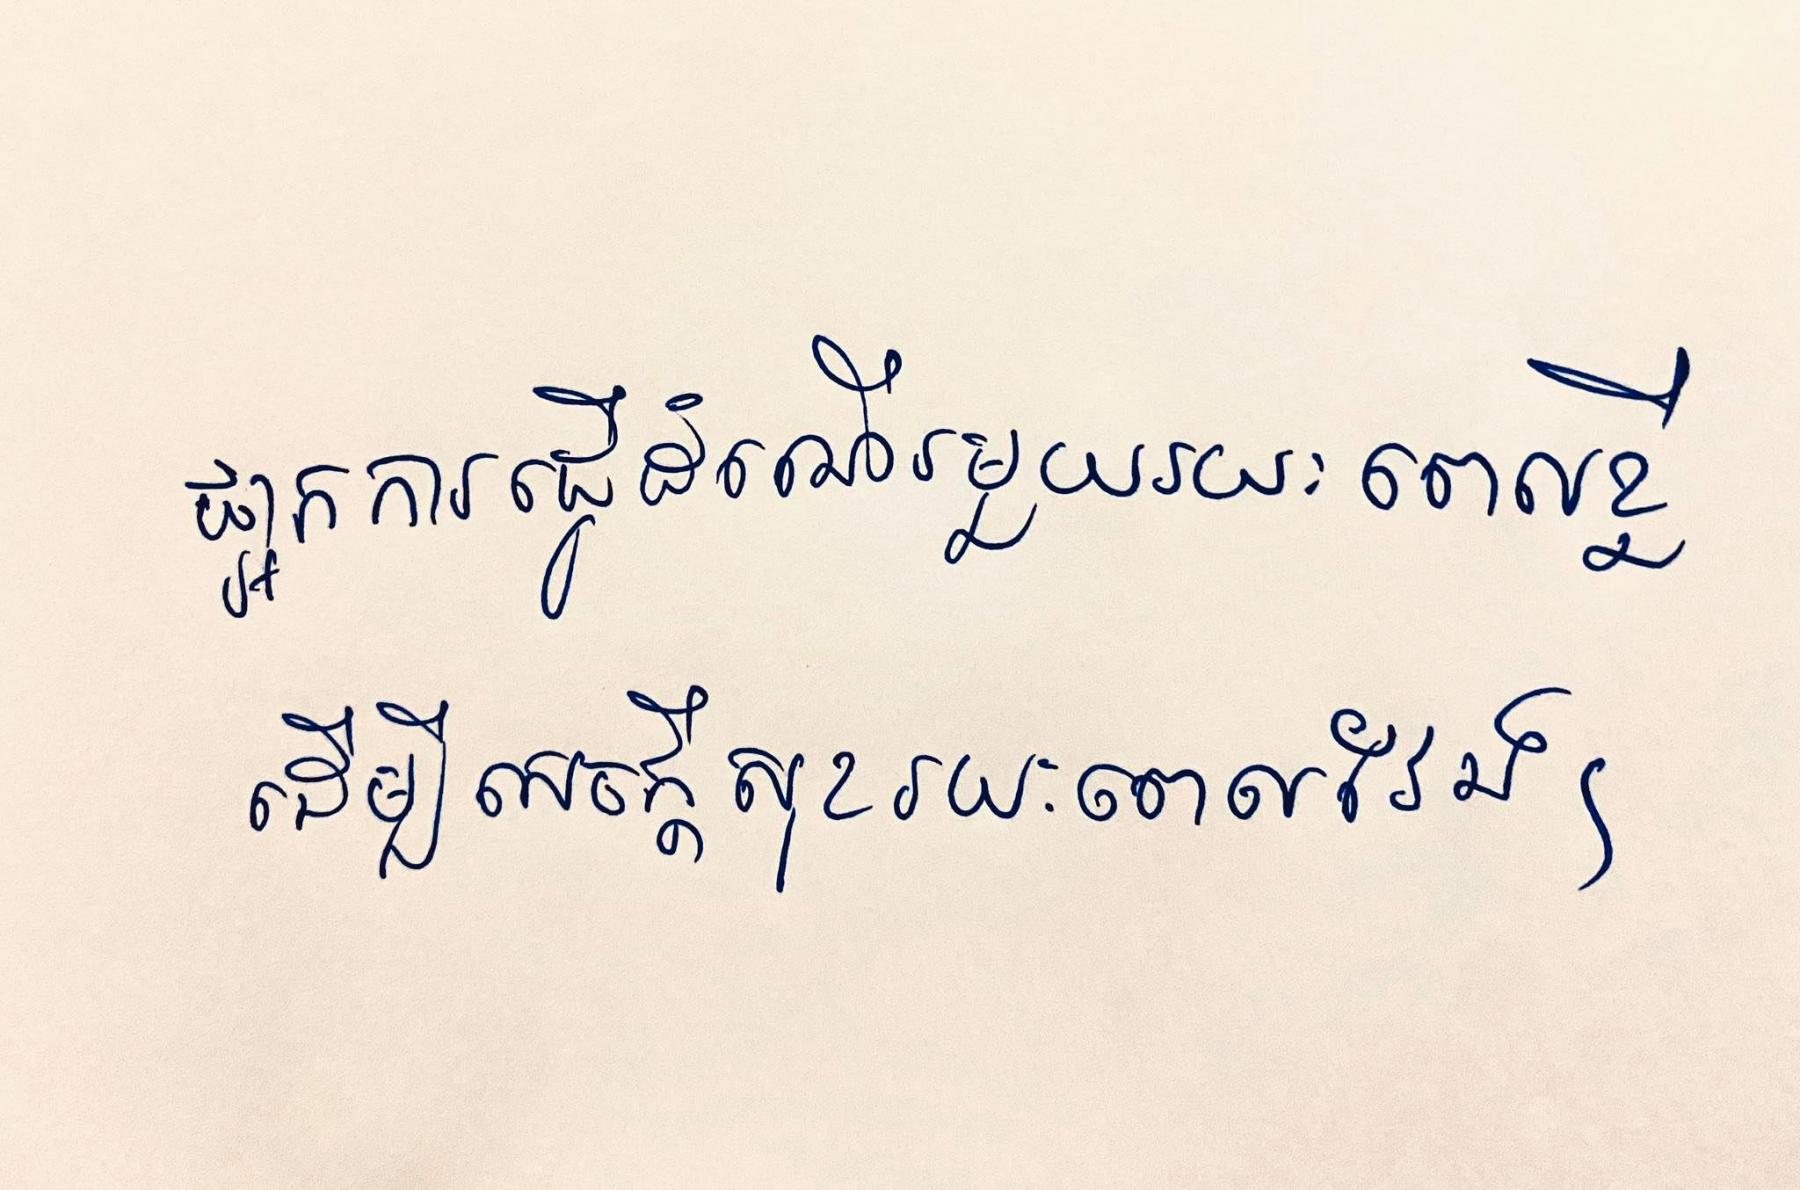 ផ្អាកការធ្វើដំណើរមួយរយៈពេលខ្លី
ដើម្បីសេចក្តីសុខរយៈពេលវែង ។